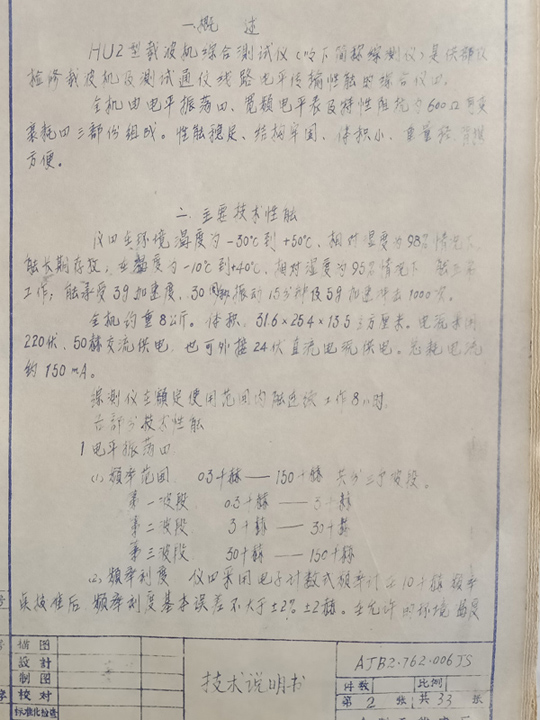 一、概 述
HU2型载波机综合测试仪(以下简称综测仪)是供部队
检修载波机及测试通信线路电平传输性能的综合仪四.
全机由电平振荡四、宽频电平表及特性阻抗为600Ω可变
衰耗四三部份组成。性能稳定、结构牢固、体积小、重量轻、
方便。
二. 主要技术性能
仪四在环境温度为-30℃到+50℃、相对湿度为98%情况下
能长期存放;在温度为-10℃到+40℃、相对湿度为95%情况下
工作;能承受3g加速度、30 振动15分钟及5g加速冲击1000次。
全机约重8公斤。体积:31.6×25.4×13.5立方厘米。电源采用
220伏、50赫交流供电,也可外接24伏直流电源供电。总耗电流
约150mA。
综测仪在额定使用范围内能连续工作8小时.
各部分技术性能
1 电平振荡四
(1) 频率范围 0.3千赫——150千赫 共分三个波段。
第一波段 0.3千赫——3千赫
第二波段 3千赫——30千赫
第三波段 30千赫——150千赫
(2) 频率刻度 仪四采用电子计数式频率计在10千赫频率
点校准后 频率刻度基本误差不大于±2%±2赫。在允许的环境温度
描图
設計
制图
校对
标准化检查
技术说明书
AJB2·762·006JS
件数
比例
第2张 共33张